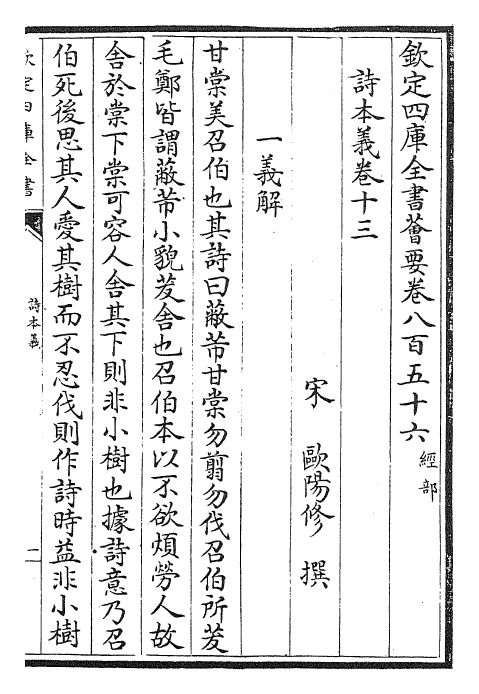 欽定四庫全書薈要卷八百五十六 經部
詩本義卷十三
宋 歐陽修 撰
一義解
甘棠美召伯也其詩曰蔽芾甘棠勿翦勿伐召伯所茇
毛鄭皆謂蔽芾小貌茇舍也召伯本以不欲煩勞人故
舍於棠下棠可容人舍其下則非小樹也據詩意乃召
伯死後思其人愛其樹而不忍伐則作詩時益非小樹
欽定四庫全書
詩本義
一